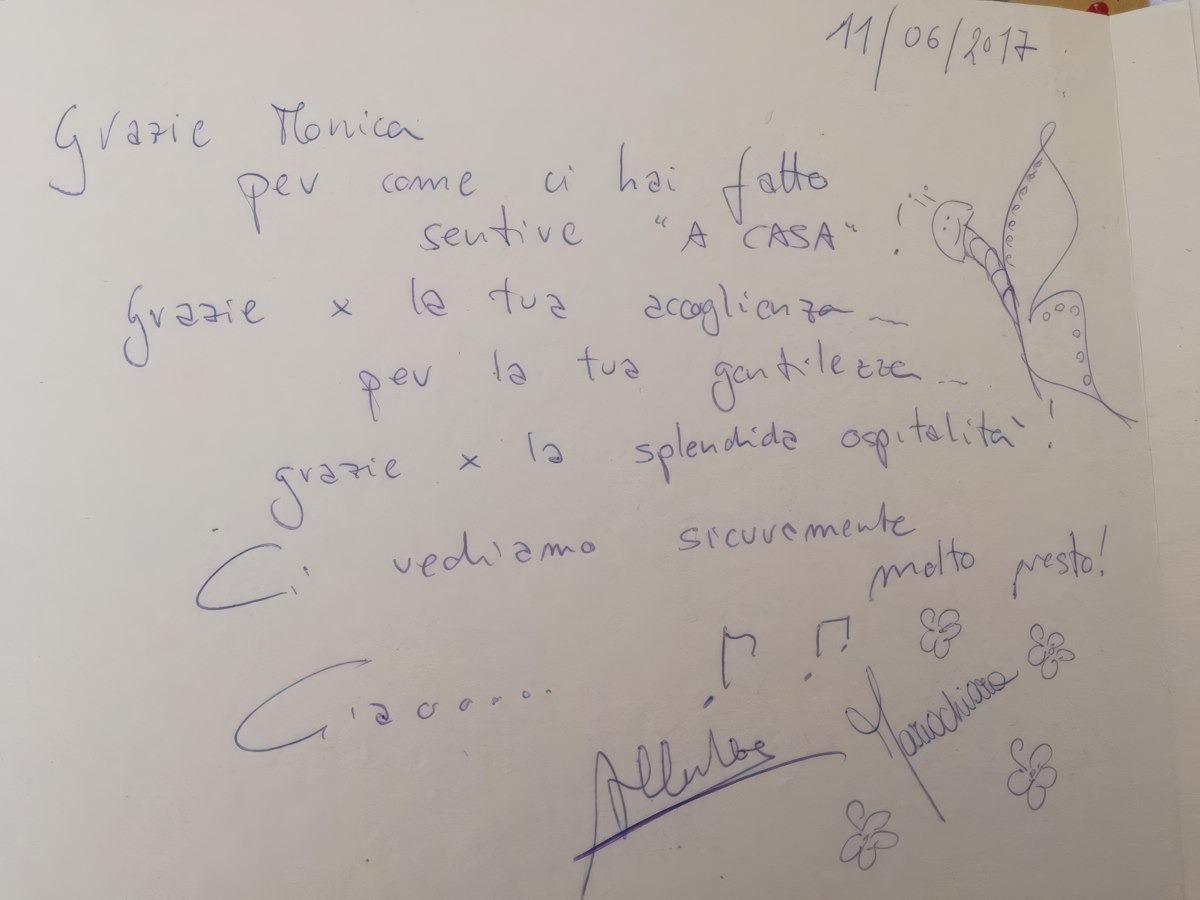 11/06/2017
Grazie Monica
per come ci hai fatto
sentire "A CASA" !
Grazie x la tua accoglienza...
per la tua gentilezza...
grazie x la splendida ospitalità!
Ci vediamo sicuramente
molto presto!
Ciaooo....
Mariachiara